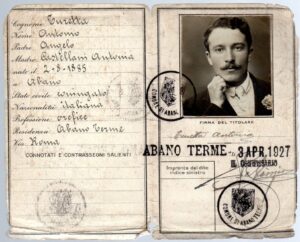 Cognome Turetta
Nome Antonio
Padre Angelo
Madre Castellani Antonia
nato il 2-8-1885
a Abano
Stato civile coniugato
Nazionalità italiana
Professione orefice
Residenza Abano Terme
Via Roma
CONNOTATI E CONTRASSEGNI SALIENTI
FIRMA DEL TITOLARE
Turetta Antonio
ABANO TERME 3 APR. 1927
Impronta del dito
indice sinistro
IL COMMISSARIO
COMUNE DI ABANO TERME